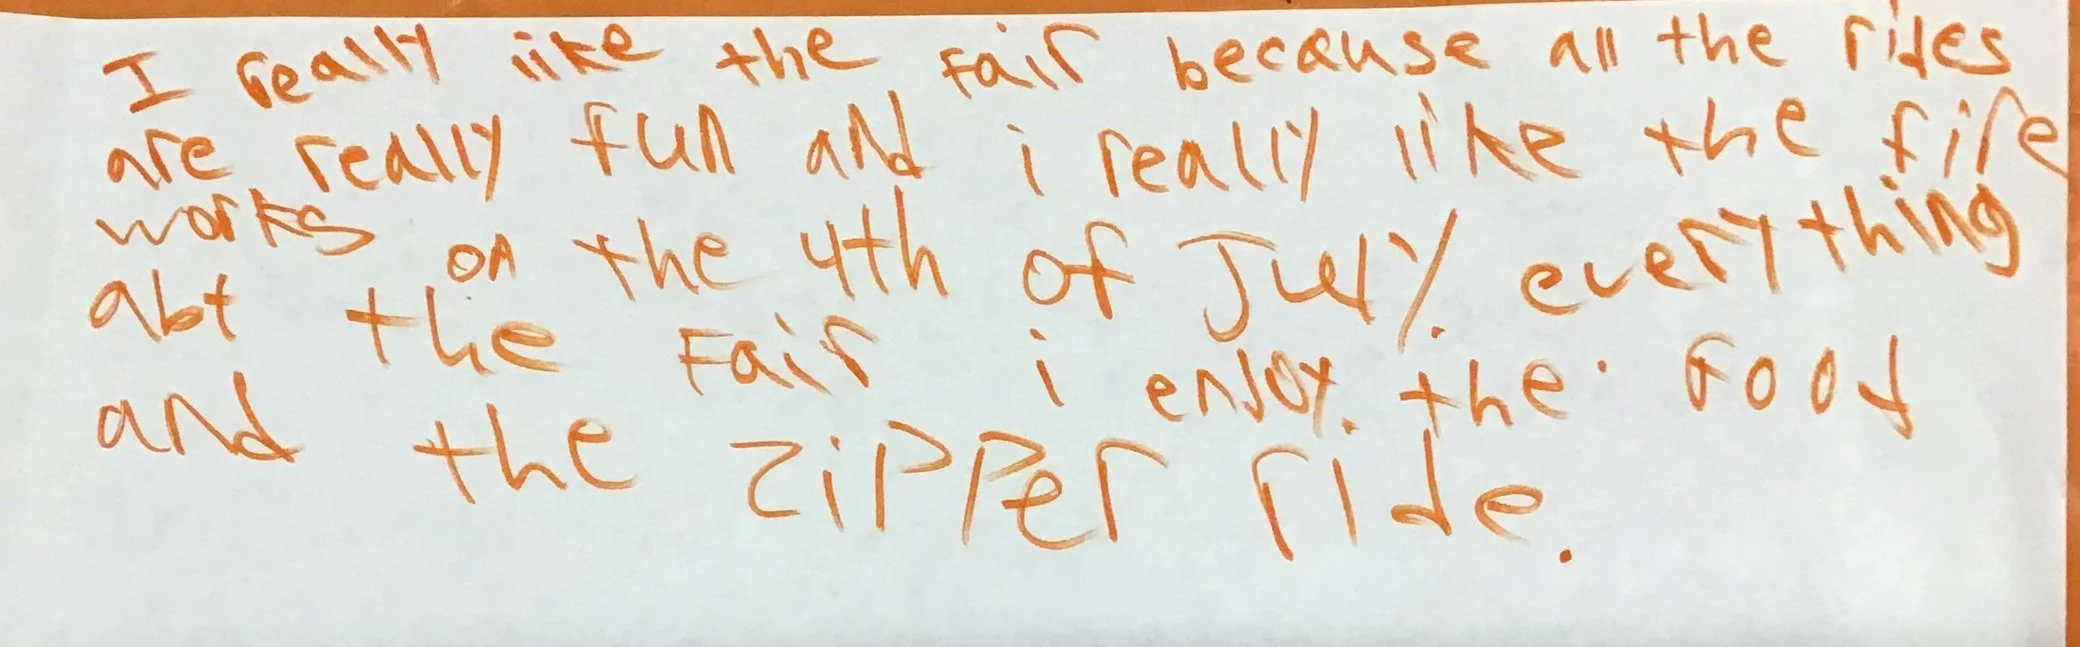 I really like the Fair because all the rides
are really fun and i really like the fire
works on the 4th of July. everything
abt the Fair i enjoy. the food
and the zipper ride.